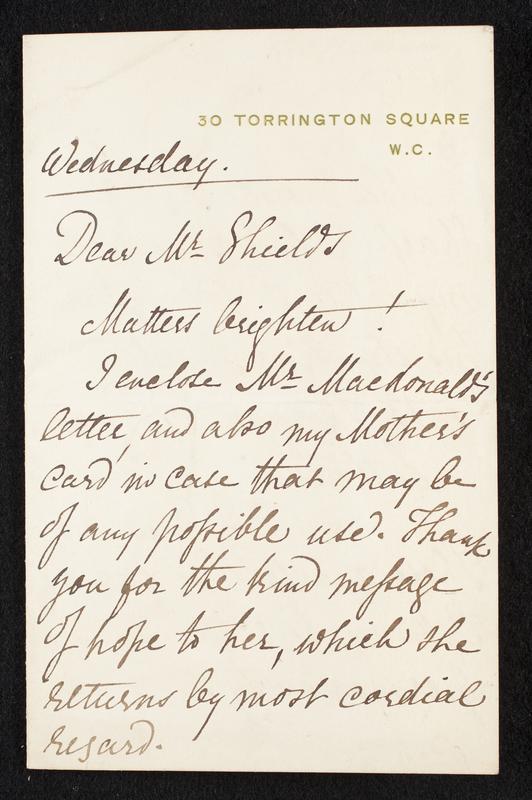 30 TORRINGTON SQUARE
W.C.
Wednesday.
Dear Mr Shields
Matters brighten!
I enclose Mr Macdonald's
letter, and also my Mother's
card in case that may be
of any possible use. Thank
you for the kind message
of hope to her, which she
returns by most cordial
regard.